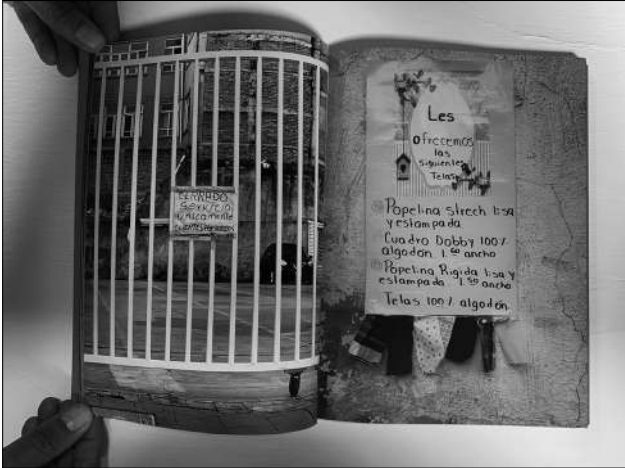 CERRADO
SERVICIO
UNicamente
Les
ofrecemos
las
siguientes
Telas
Popelina strech lisa
y estampada
Cuadro Dobby 100%
algodón 1.60 ancho
Popelina Rigida lisa y
estampada 1.50 ancho
Telas 100% algodón